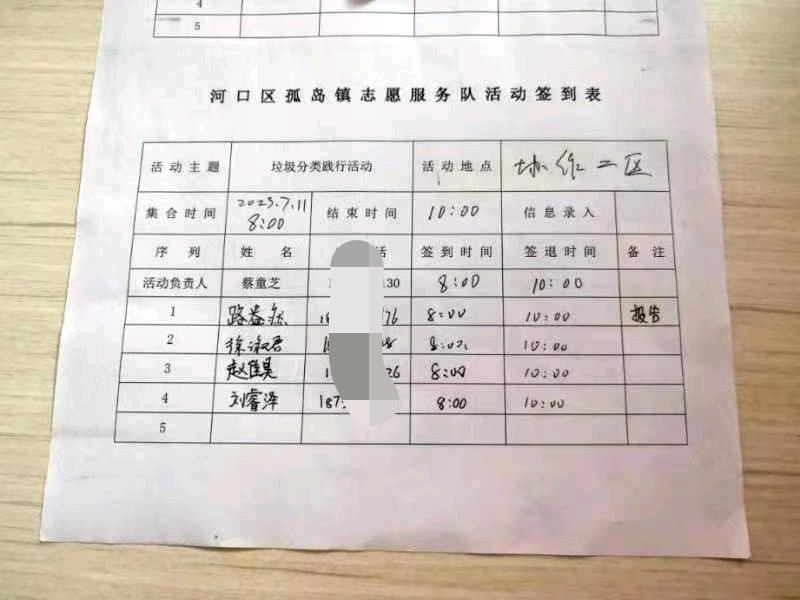 4
5
河口区孤岛镇志愿服务队活动签到表
活动主题 垃圾分类践行活动 活动地点 协作二区
集合时间 2023.7.11 8:00 结束时间 10:00 信息录入
序列 姓名 话 签到时间 签退时间 备注
活动负责人 蔡童芝 1 130 8:00 10:00
1 路 18 76 8:00 10:00 报告
2 徐淑君 1 8:00 10:00
3 赵佳昊 1 26 8:00 10:00
4 刘睿泽 187 8:00 10:00
5